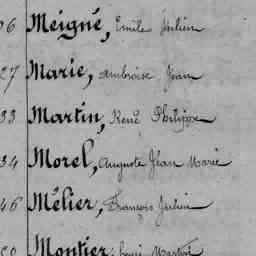 06 Meigné, Emile Julien
27 Marie, Ambroise Jean
33 Martin, René Philippe
34 Morel, Auguste Jean Marie
46 Mélier, François Julien
Montier, Henri